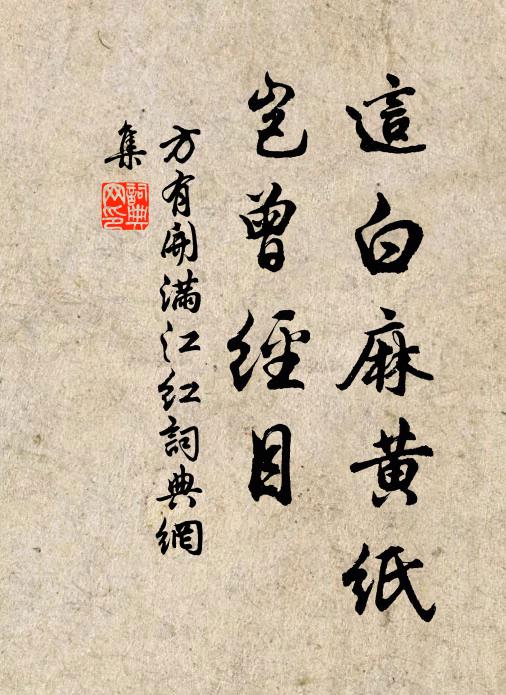 這白麻黄紙
豈曾經目
方有開滿江紅詞典網
集
詞典網印